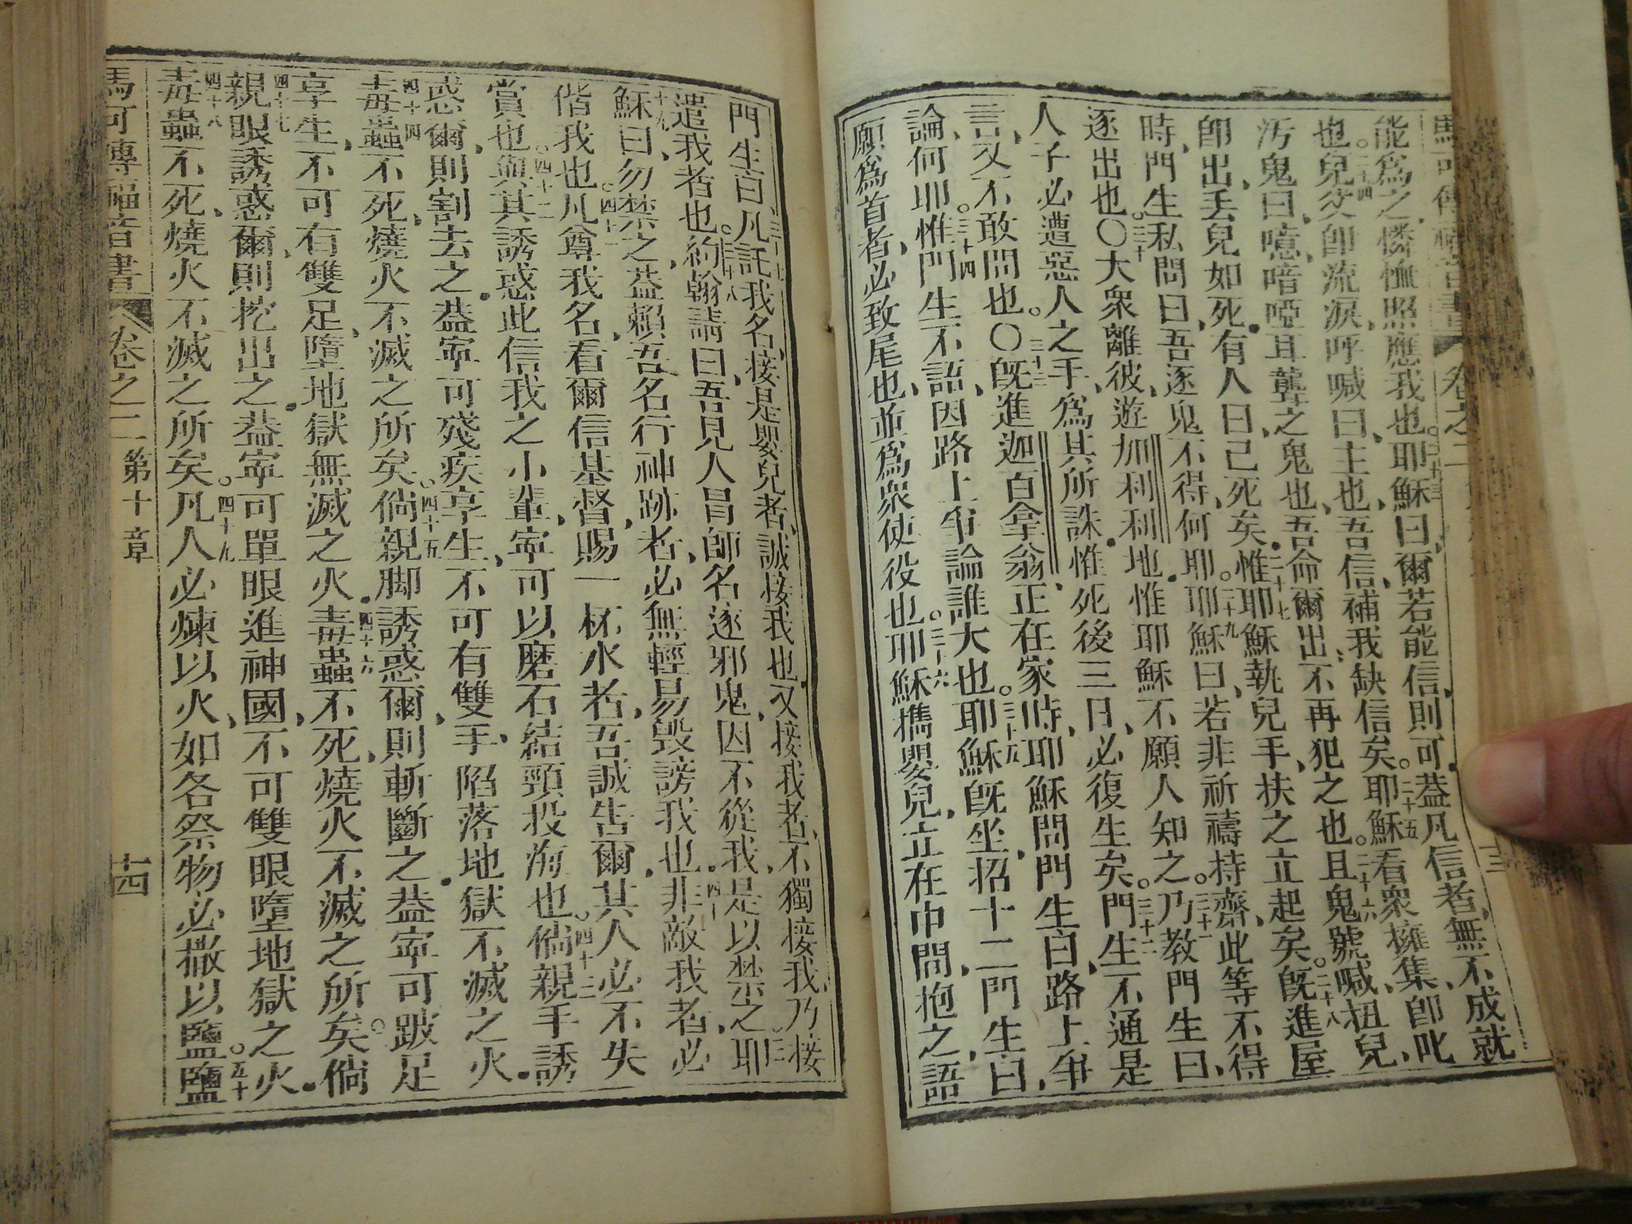 馬可傳福音書 卷之二
能爲之憐恤照應我也耶穌曰爾若能信則可葢凡信者無不成就
也二十四兒父卽流淚呼喊曰主也吾信補我缺信矣二十五耶穌看衆擁集卽叱
汚鬼曰噫喑啞耳聾之鬼也吾命爾出不再犯之也二十六且鬼號喊扭兒
卽出丢兒如死有人曰已死矣二十七惟耶穌執兒手扶之立起矣二十八旣進屋
時門生私問曰吾逐鬼不得何耶二十九耶穌曰若非祈禱持齋此等不得
逐出也三十〇大衆離彼遊加利利地惟耶穌不願人知之三十一乃敎門生曰
人子必遭惡人之手爲其所誅惟死後三日必復生矣三十二門生不通是
言又不敢問也〇三十三旣進迦百拿翁正在家時耶穌問門生曰路上爭
論何耶三十四惟門生不語因路上爭論誰大也三十五耶穌旣坐招十二門生曰
願爲首者必致尾也並爲衆使役也三十六耶穌擕嬰兒立在中間抱之語
門生曰三十七凡託我名接是嬰兒者誠接我也又接我者不獨接我乃接
遣我者也三十八約翰請曰吾見人冒師名逐邪鬼因不從我是以禁之三十九耶
穌曰勿禁之葢賴吾名行神跡者必無輕易毀謗我也四十非敵我者必
偕我也四十一凡尊我名看爾信基督賜一杯水者吾誠告爾其人必不失
賞也四十二與其誘惑此信我之小輩寜可以磨石結頸投海也四十三倘親手誘
惑爾則割去之葢寜可殘疾享生不可有雙手陷落地獄不滅之火
四十四毒蟲不死燒火不滅之所矣四十五倘親脚誘惑爾則斬斷之葢寜可跛足
享生不可有雙足墮地獄無滅之火四十六毒蟲不死燒火不滅之所矣倘
四十七親眼誘惑爾則挖出之葢寜可單眼進神國不可雙眼墮地獄之火
四十八毒蟲不死燒火不滅之所矣四十九凡人必煉以火如各祭物必撒以鹽五十鹽
馬可傳福音書 卷之二 第十章 十四